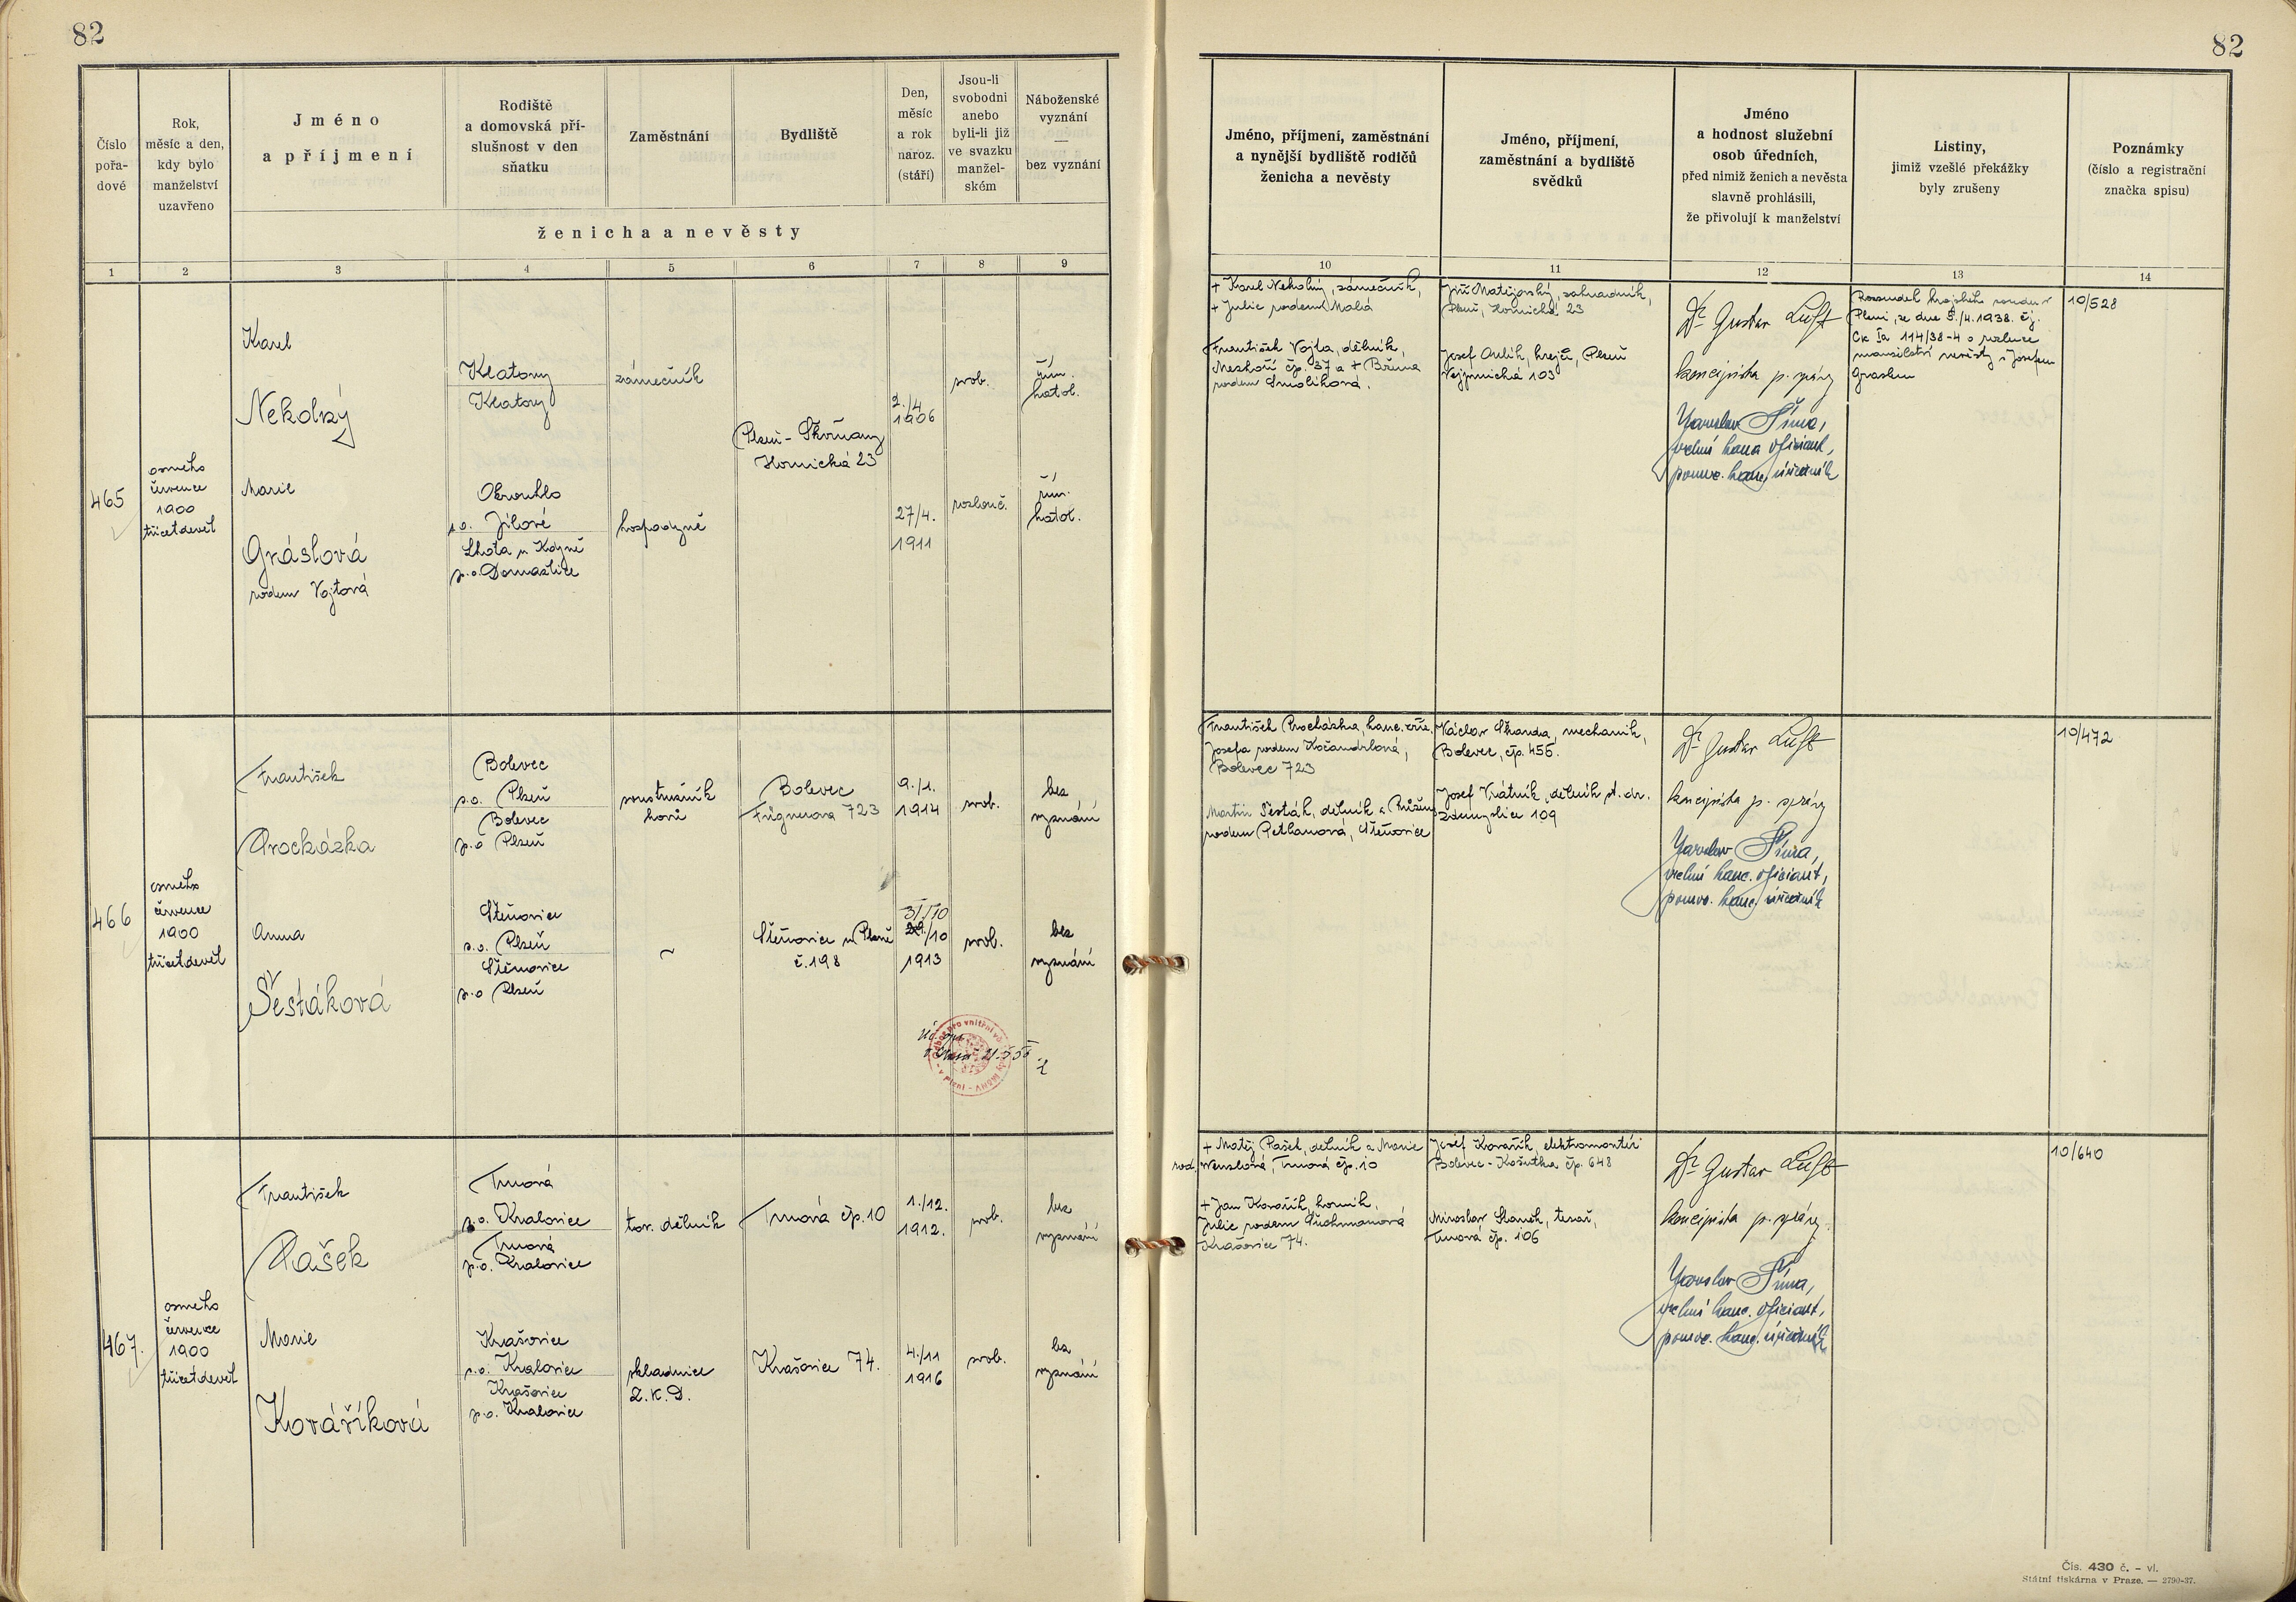 82
82
Číslo
pořa-
dové
Rok,
měsíc a den,
kdy bylo
manželství
uzavřeno
Jméno
a příjmení
Rodiště
a domovská pří-
slušnost v den
sňatku
Zaměstnání
Bydliště
Den,
měsíc
a rok
naroz.
(stáří)
Jsou-li
svobodni
anebo
byli-li již
ve svazku
manžel-
ském
Náboženské
vyznání
—
bez vyznání
ženicha a nevěsty
Jméno, příjmení, zaměstnání
a nynější bydliště rodičů
ženicha a nevěsty
Jméno, příjmení,
zaměstnání a bydliště
svědků
Jméno
a hodnost služební
osob úředních,
před nimiž ženich a nevěsta
slavně prohlásili,
že přivolují k manželství
Listiny,
jimiž vzešlé překážky
byly zrušeny
Poznámky
(číslo a registrační
značka spisu)
1 2 3 4 5 6 7 8 9 10 11 12 13 14
465
osmého
července
1900
třicetdevět
Karel
Nekolný
Klatovy
Klatovy
zámečník
Plzeň - Skvrňany
Hornická 23
2./4
1906
svob.
řím.
katol.
Marie
Gráslová
rodem Vojtová
Okrouhlo
s.o. Jílové
Lhota u Kdyně
p.o. Domažlice
hospodyně
27/4.
1911
rozlouč.
řím.
katol.
+ Karel Nekolný, zámečník,
+ Julie rodem Malá
František Vojta, dělník,
čp. 37 a + Božena
rodem Smolíková.
Jiří Matějovský, zahradník,
Plzeň, Hornická 23
Josef krejčí, Plzeň
103
Dr Gustav Luft
koncipista p. správy
Jaroslav Šíma,
vrchní kanc. oficiant,
pomoc. kanc. úředník
Rozsudek krajského soudu v
Plzni, ze dne 5./4. 1938. čj.
Ck Ia 114/38-4 o rozluce
manželství nevěsty s Josefem
Graslem
10/528
466
osmého
července
1900
třicetdevět
František
Procházka
Bolevec
s.o. Plzeň
Bolevec
p.o Plzeň
soustružník
kovů
Bolevec
Fügnerova 723
9./1.
1914
svob.
bez
vyznání
Anna
Šestáková
Štěnovice
s.o. Plzeň
Štěnovice
p.o Plzeň
~
Štěnovice u Plzně
č. 198
31/10
29./10
1913
svob.
bez
vyznání
František Procházka, kanc. zříz.
Josefa rodem Kočandrlová,
Bolevec 723
Martin Šesták, dělník a Růžena
rodem Pethanová, Štěnovice
Václav Škanda, mechanik,
Bolevec, čp. 455.
Josef Vrátník, dělník st. dr.
Zdemyslice 109
Dr Gustav Luft
koncipista p. správy
Jaroslav Šíma,
vrchní kanc. oficiant,
pomoc. kanc. úředník
10/472
467.
osmého
července
1900
třicetdevět
František
Pašek
Trnová
s.o. Kralovice
Trnová
p.o. Kralovice
tov. dělník
Trnová čp. 10
1./12.
1912.
svob.
bez
vyznání
Marie
Kováříková
Krašovice
s.o. Kralovice
Krašovice
p.o. Kralovice
skladnice
Z.K.D.
Krašovice 74.
4./11
1916
svob.
bez
vyznání
+ Matěj Pašek, dělník a Marie
rod. Trnová čp. 10
+ Jan Kovařík, horník,
Julie rodem Suchmanová
Krašovice 74.
Josef Kovařík, elektromontér
Bolevec - Košutka čp. 648
Miroslav Staněk, tesař,
Trnová čp. 106
Dr Gustav Luft
koncipista p. správy.
Jaroslav Šíma,
vrchní kanc. oficiant,
pomoc. kanc. úředník
10/640
Čís. 430 č. - vl.
Státní tiskárna v Praze. — 2790-37.